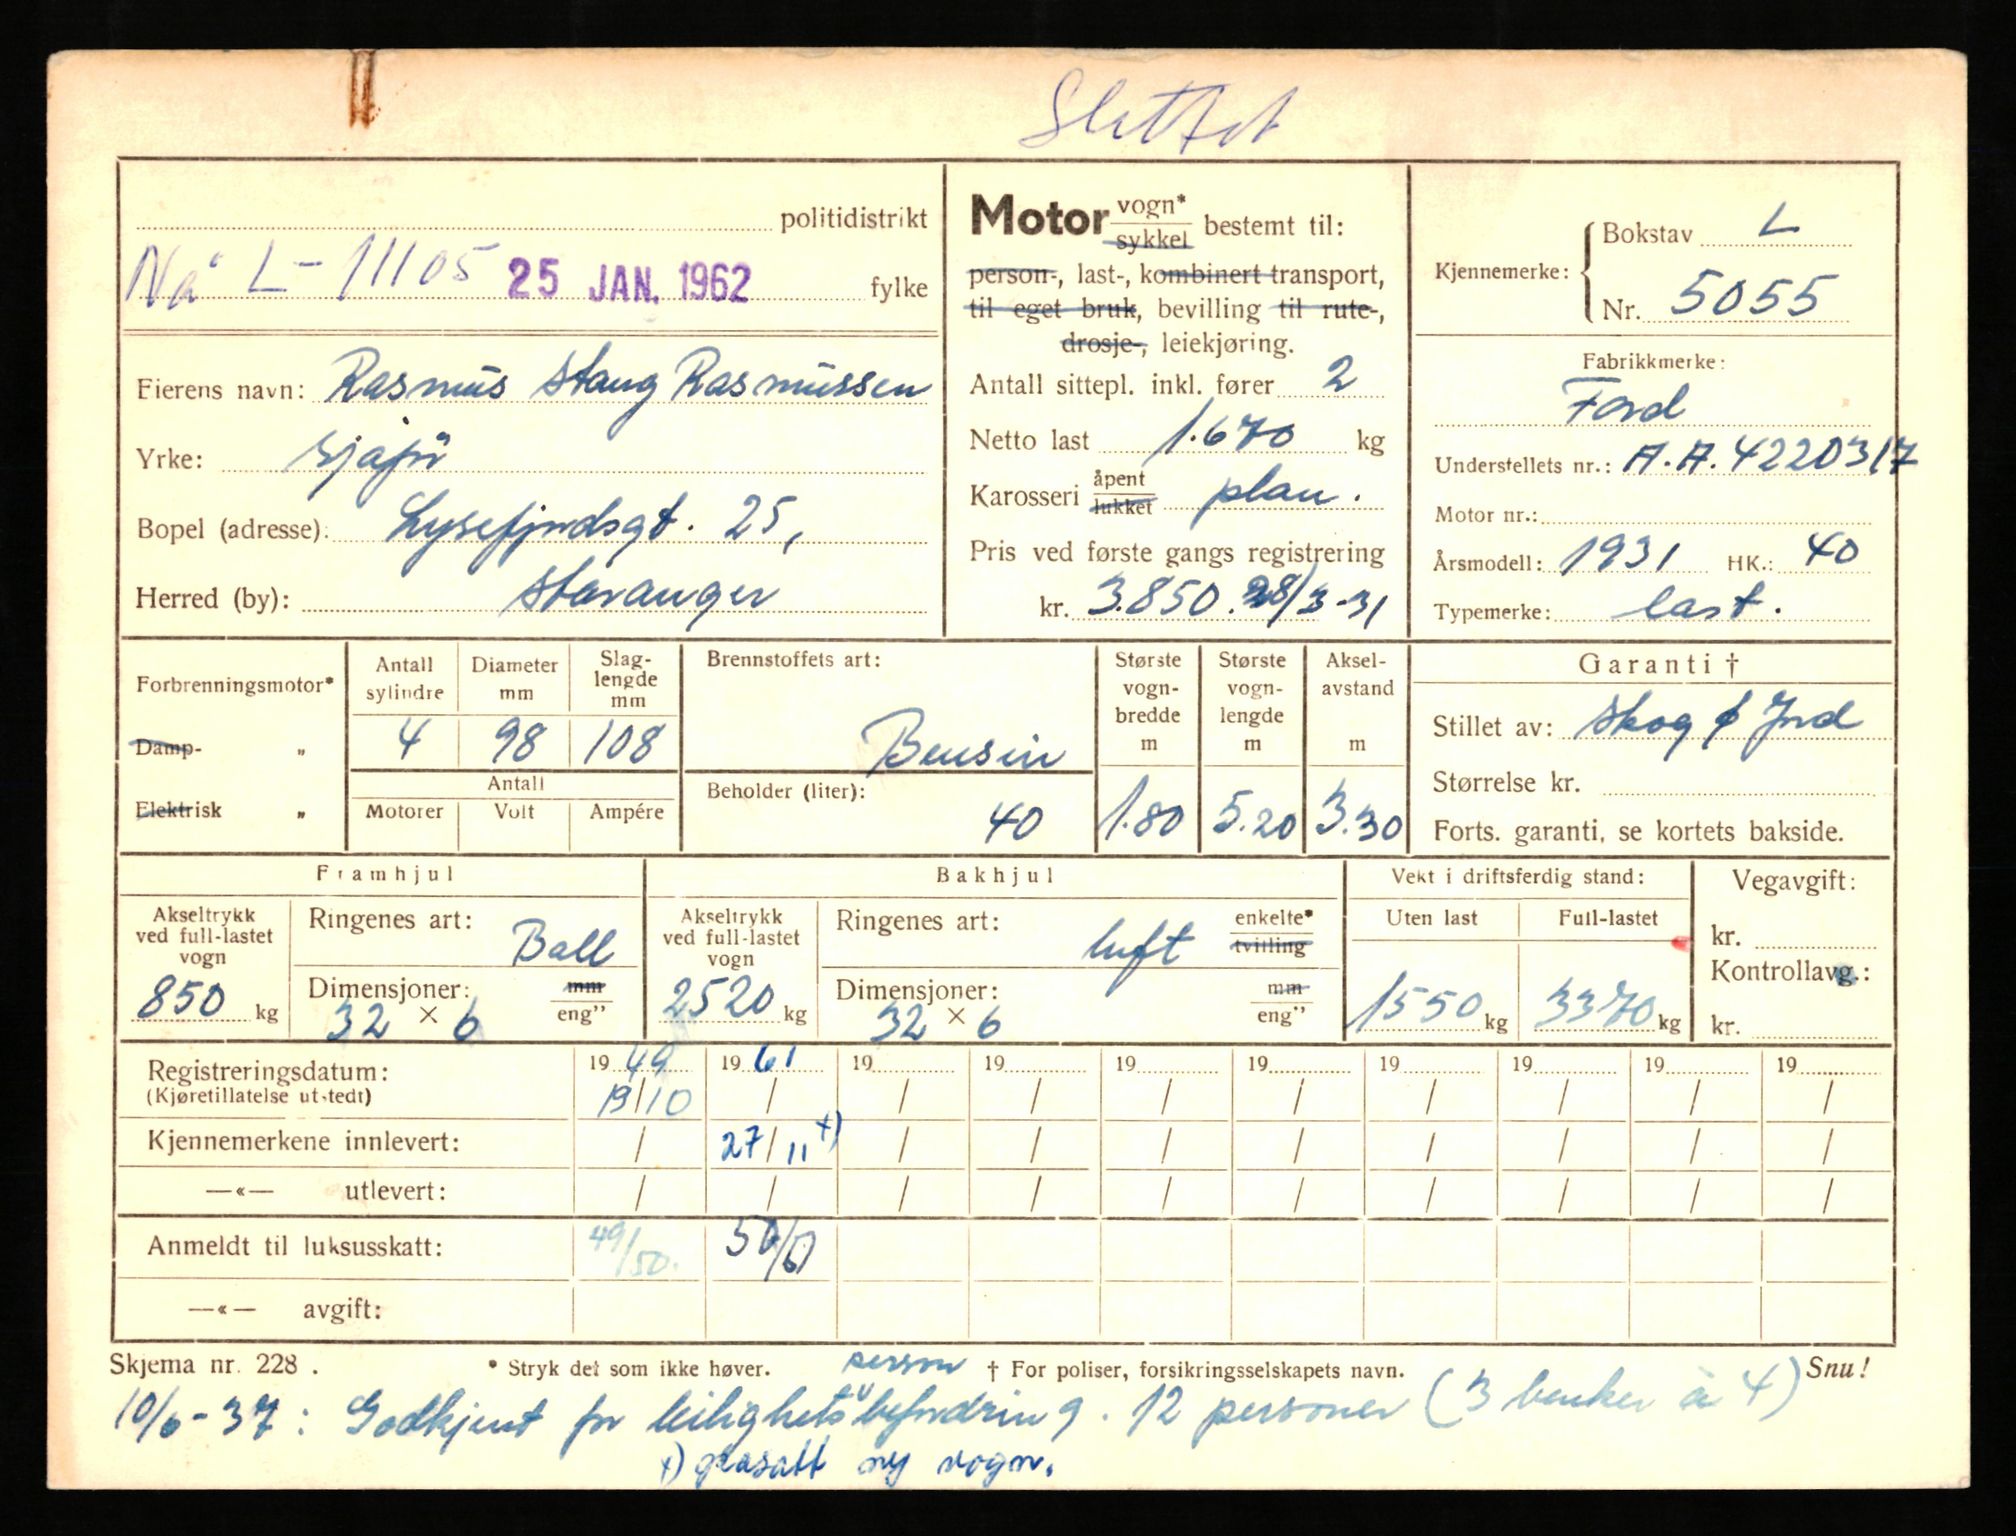 Slettet
politidistrikt
Nå L-11105 25 JAN. 1962 fylke
Eierens navn: Rasmus Stang Rasmussen
Yrke: sjåfør
Bopel (adresse): Lysefjordsgt. 25,
Herred (by): Stavanger
Motor vogn* / sykkel bestemt til:
person-, last-, kombinert transport,
til eget bruk, bevilling til rute-,
drosje-, leiekjøring.
Antall sittepl. inkl. fører 2
Netto last 1.670 kg
Karosseri åpent / lukket plan.
Pris ved første gangs registrering
kr. 3.850. 28/3-31
Kjennemerke: Bokstav L
Nr. 5055
Fabrikkmerke:
Ford
Understellets nr.: A.A. 4220317
Motor nr.:
Årsmodell: 1931 HK.: 40
Typemerke: last.
Forbrenningsmotor*
Damp- "
Elektrisk "
Antall sylindre Diameter mm Slag-lengde mm
4 98 108
Antall
Motorer Volt Ampére
Brennstoffets art:
Bensin
Beholder (liter):
40
Største vogn-bredde m Største vogn-lengde m Aksel-avstand m
1.80 5.20 3.30
Garanti †
Stillet av: Skog & Jord
Størrelse kr.
Forts. garanti, se kortets bakside.
Framhjul
Akseltrykk ved full-lastet vogn
850 kg
Ringenes art: Ball
Dimensjoner: mm / eng"
32 × 6
Bakhjul
Akseltrykk ved full-lastet vogn
2520 kg
Ringenes art: luft enkelte* / tvilling
Dimensjoner: mm / eng"
32 × 6
Vekt i driftsferdig stand:
Uten last Full-lastet
1550 kg 3370 kg
Vegavgift:
kr.
Kontrollavg.:
kr.
Registreringsdatum: 1949 1961 19 19 19 19 19 19 19 19
(Kjøretillatelse utstedt) 19/10 / / / / / / / / /
Kjennemerkene innlevert: / 27/11 +) / / / / / / / /
—«— utlevert: / / / / / / / / / /
Anmeldt til luksusskatt: 49/50. 50/51
—«— avgift:
Skjema nr. 228. * Stryk det som ikke høver. † For poliser, forsikringsselskapets navn. Snu!
person
10/6-37: Godkjent for leilighets befordring. 12 personer (3 benker à 4)
+) gjensatt ny vogn.